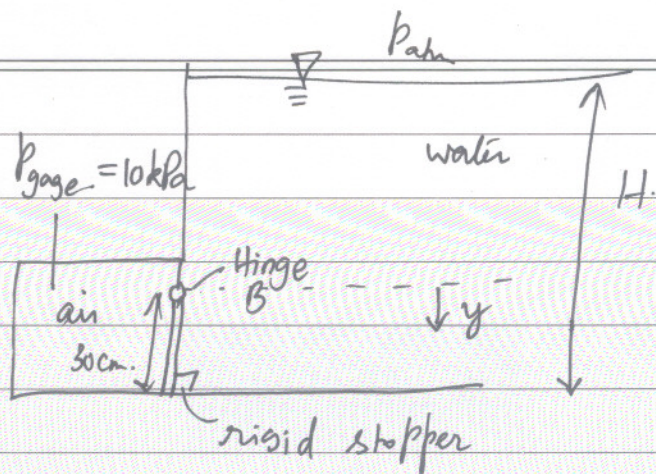 Patm
water
Pgage = 10kPa
H.
Hinge
B
y
air
30cm.
rigid stopper